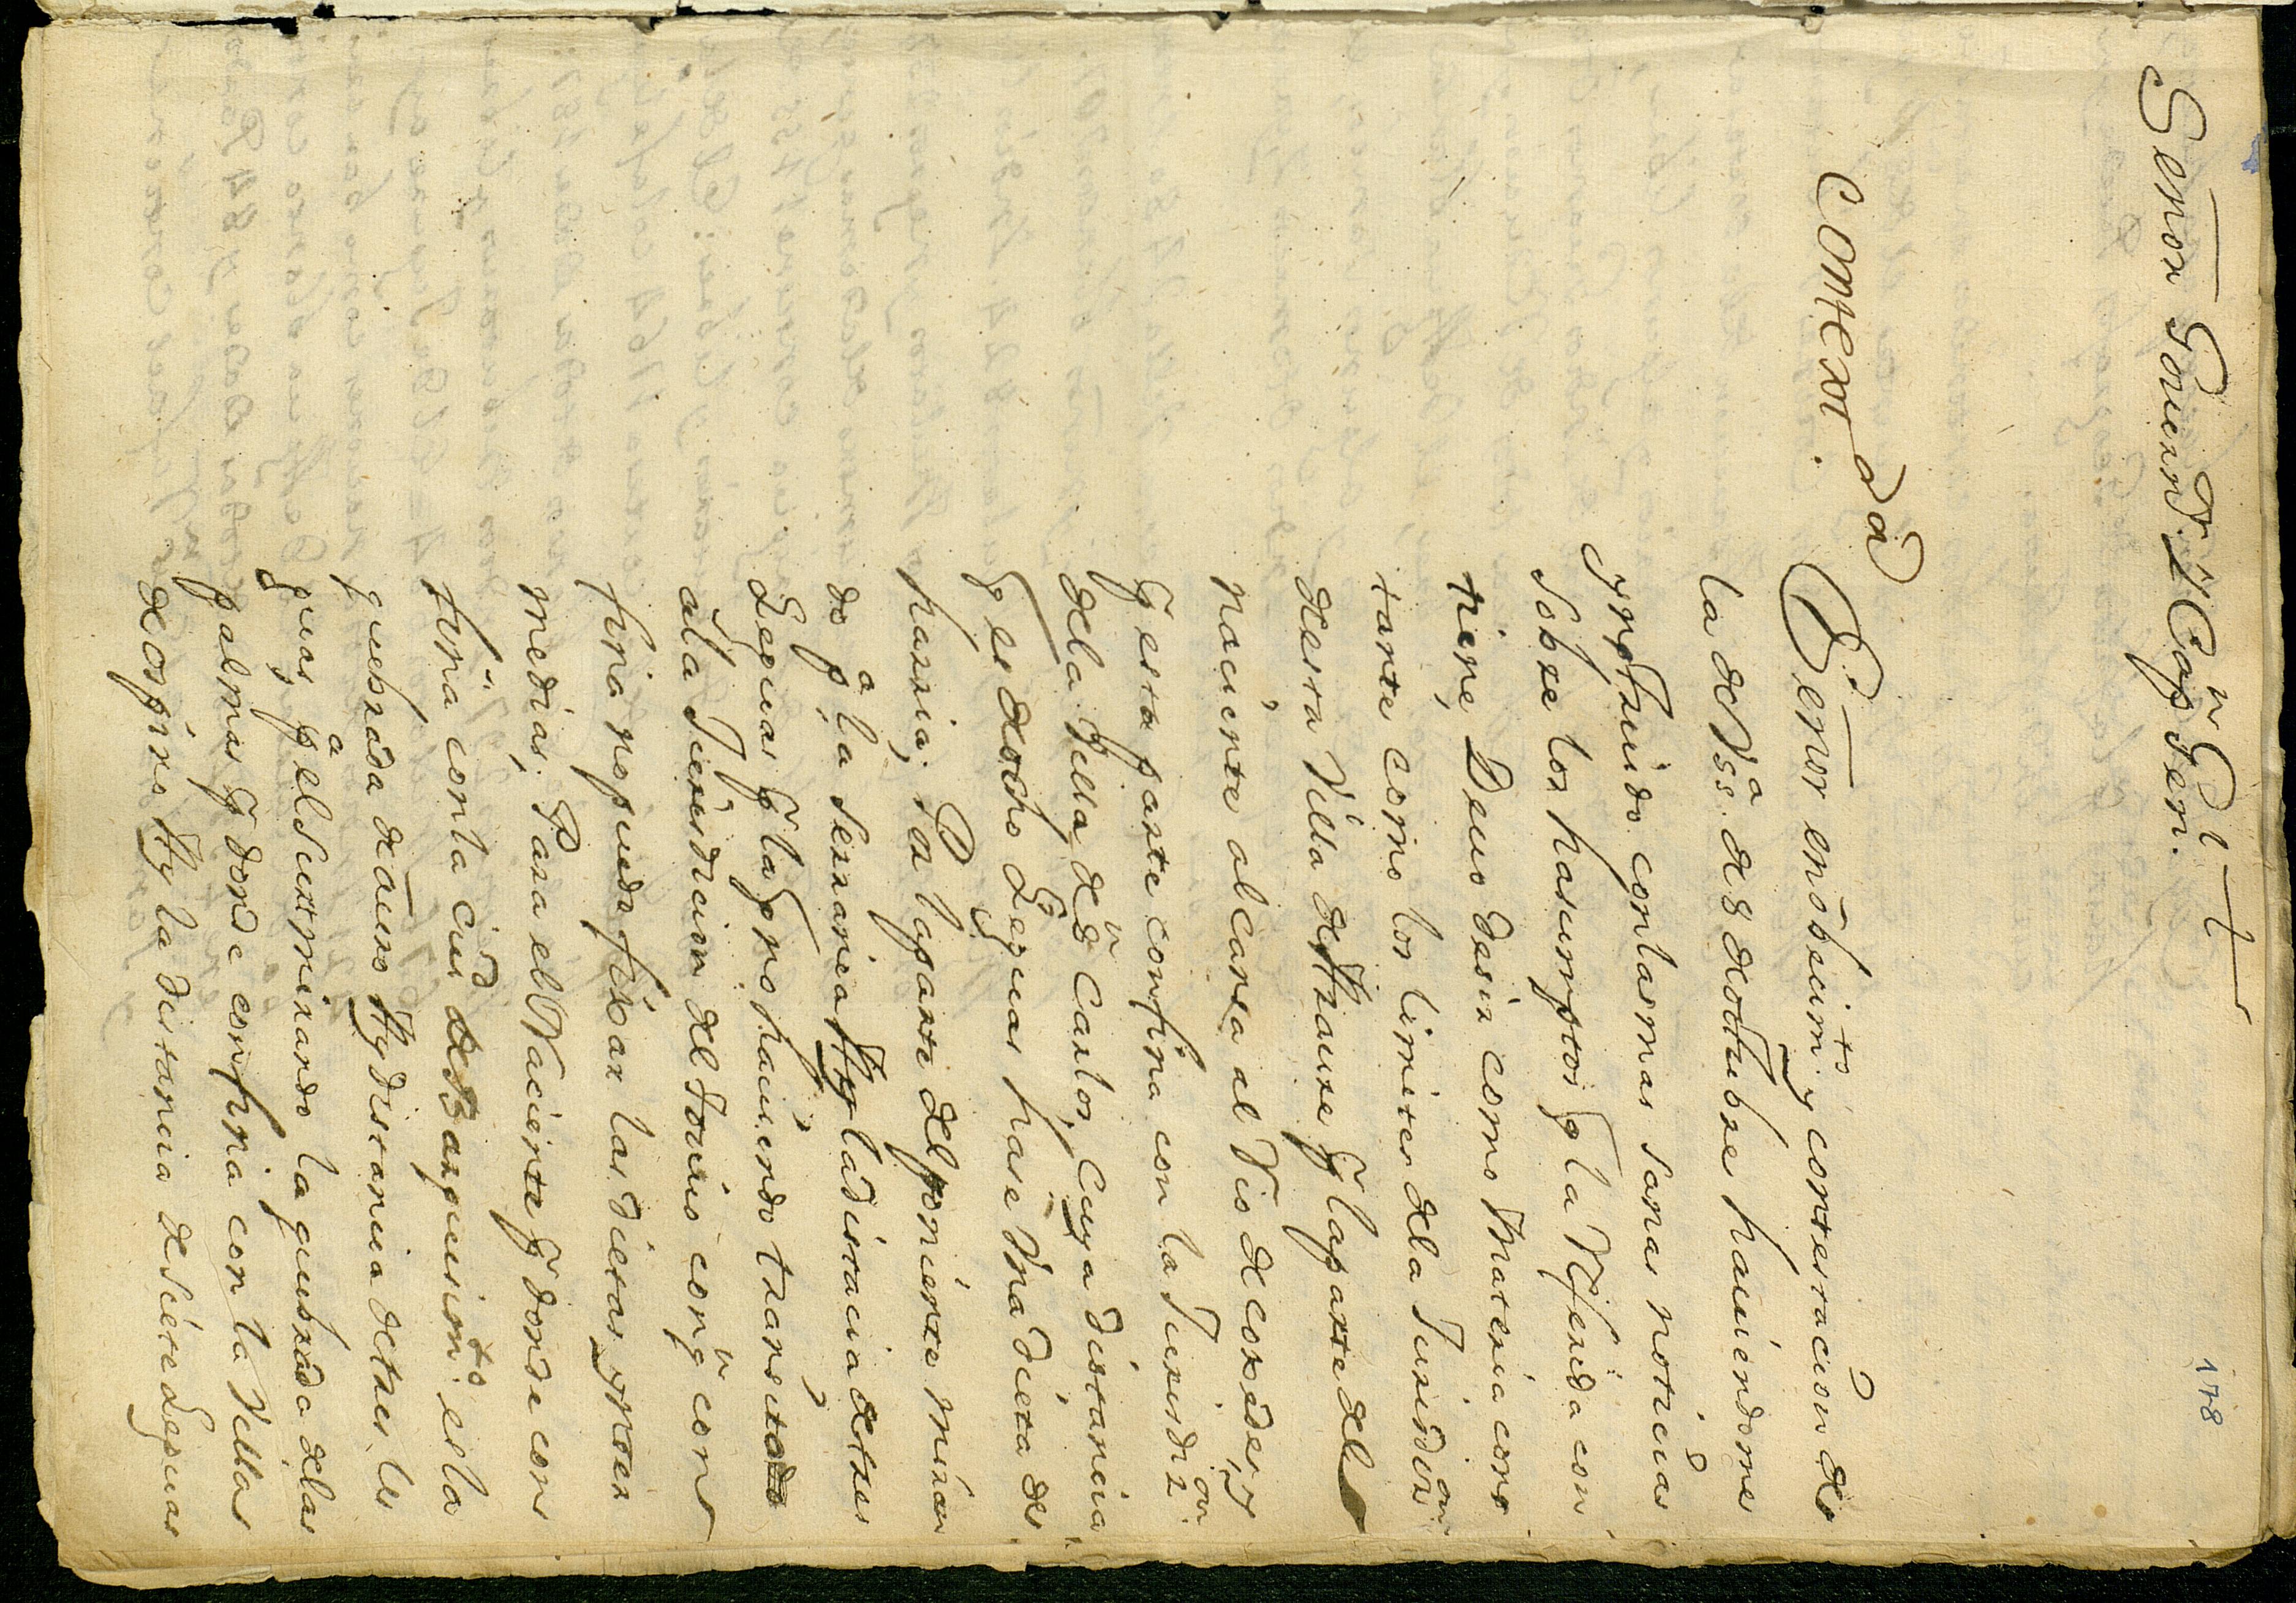 178
Señor Gouern.or y Cap.n Gen.l
Context.da
Señor en obecim.to y contestacion de
la de Vss.a de 8 de octubre hauiendome
ynstruido con las mas sanas noticias
sobre los hasumptos q la Referida con
tiene, Deuo desir como Materia cons
tante como los limites dela Jurisdicion
desta Villa de Araure q la parte del
naciente alcansa al Rio de Coxede, y
q esta parte confina con la Jurisdi.on
dela Villa de S.n Carlos, Cuya distancia
q es de ocho Leguas hase Una dieta de
harria; Por la parte del poniente miran
do p.a la Serrania Ay la distacia de tres
Leguas q la q no hauiendo transitado
ala Jurisdicion de Tocuio con q.n con
fina no puedo fixar las dietas ynter
medias; Para el Naciente q donde con
fina con la Ciu.d de Barquisim.to es la
quebrada de auro Ay distancia de tres le
guas p.a el Sur mirando la quebrada delas
palmas q donde confina con la Villa
de ospino Ay la distancia de siete Leguas